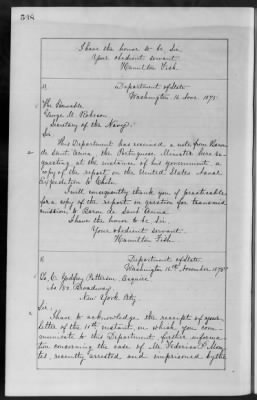 538
I have the honor to be Sir
Your obedient servant
Hamilton Fish.
Department of State
Washington 16 June 1875
The Honorable
George M. Robeson
Secretary of the Navy.
Sir
This Department has received a note from Baron
de Sant'Anna, the Portuguese Minister here re-
questing at the instance of his government a
copy of the report on the United States Naval
Expedition to
I will consequently thank you if practicable
for a copy of the report in question for transmis-
sion to Baron de Sant'Anna
I have the honor to be, Sir,
Your obedient servant.
Hamilton Fish.
Department of State
Washington 16th November 1875
C. Godfrey Patterson Esquire
No Broadway
New York City
Sir,
I have to acknowledge the receipt of your
letter of the 10th instant, in which you com-
municate to this Department further informa-
tion concerning the case of Mr. Federico P.
recently arrested and imprisoned by the